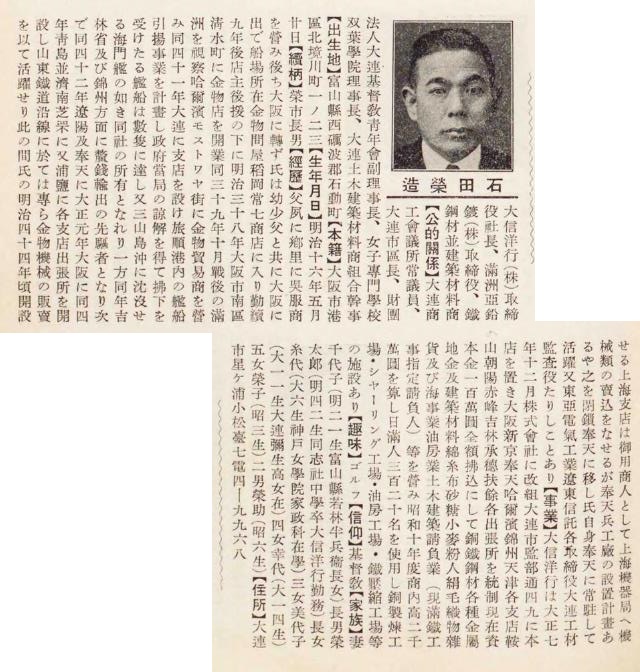 石田榮造
大信洋行(株)取締
役社長、滿洲亞鉛
鍍(株)取締役、鐵
鋼材並建築材料商
【公的關係】大連商
工會議所常議員、
大連市區長、財團
法人大連基督敎靑年會副理事長、女子專門學校
雙葉學院理事長、大連土木建築材料商組合幹事
【出生地】富山縣西礪波郡石動町【本籍】大阪市港
區北境川町一ノ二三【生年月日】明治十六年五月
廿日【續柄】榮市長男【經歷】父夙に鄕里に吳服商
を營み後ち大阪に轉ず氏は幼少父と共に大阪に
出で船場所在金物問屋稻岡常七商店に入り勤續
九年後店主後援の下に明治三十八年大阪市南區
淸水町に金物店を開業同三十九年十月戰後の滿
洲を視察哈爾濱モストワヤ街に金物貿易商を營
み同四十一年大連に支店を設け旅順港內の艦船
引揚事業を計畫し政府當局の諒解を得て拂下を
受けたる艦船は數隻に達し又三山島沖に沈沒せ
る海門艦の如き同社の所有となれり一方同年吉
林省及び錦州方面に鰲錢輸出の先驅者となり次
で同四十二年遼陽及奉天に大正元年大阪に同四
年靑島並濟南芝罘に又浦鹽に各支店出張所を開
設し山東鐵道沿線に於ては專ら金物機械の販賣
を以て活躍せり此の間氏の明治四十四年頃開設
せる上海支店は御用商人として上海機器局へ機
械類の賣込をなせるが奉天兵工廠の設置計畫あ
るや之を閉鎖奉天に移し氏自身奉天に常駐して
活躍又東亞電氣工業遼東信託各取締役大連工材
監査役たりしことあり【事業】大信洋行は大正七
年十二月株式會社に改組大連市監部通四九に本
店を置き大阪新京奉天哈爾濱錦州天津各支店鞍
山朝陽赤峰吉林承德扶餘各出張所を統制現在資
本金一百萬圓全額拂込にして銅鐵鋼材各種金屬
地金及建築材料綿糸布砂糖小麥粉人絹毛織物雜
貨及び海事業油房業土木建築請負業(現滿鐵工
事指定請負人)等を營み昭和十年度商內高二千
萬圓を算し日滿人三百二十名を使用し銅製煉工
場・シヤーリング工場・油房工場・鐵壓縮工場等
の施設あり【趣味】ゴルフ【信仰】基督敎【家族】妻
千代子(明二一生富山縣若林半兵衞長女)長男榮
太郞(明四二生同志社中學卒大信洋行勤務)長女
糸代(大六生神戶女學院家政科在學)三女美代子
(大一一生大連彌生高女在)四女幸代(大一四生)
五女榮子(昭三生)二男榮助(昭六生)【住所】大連
市星ヶ浦小松臺七電四―九九六八